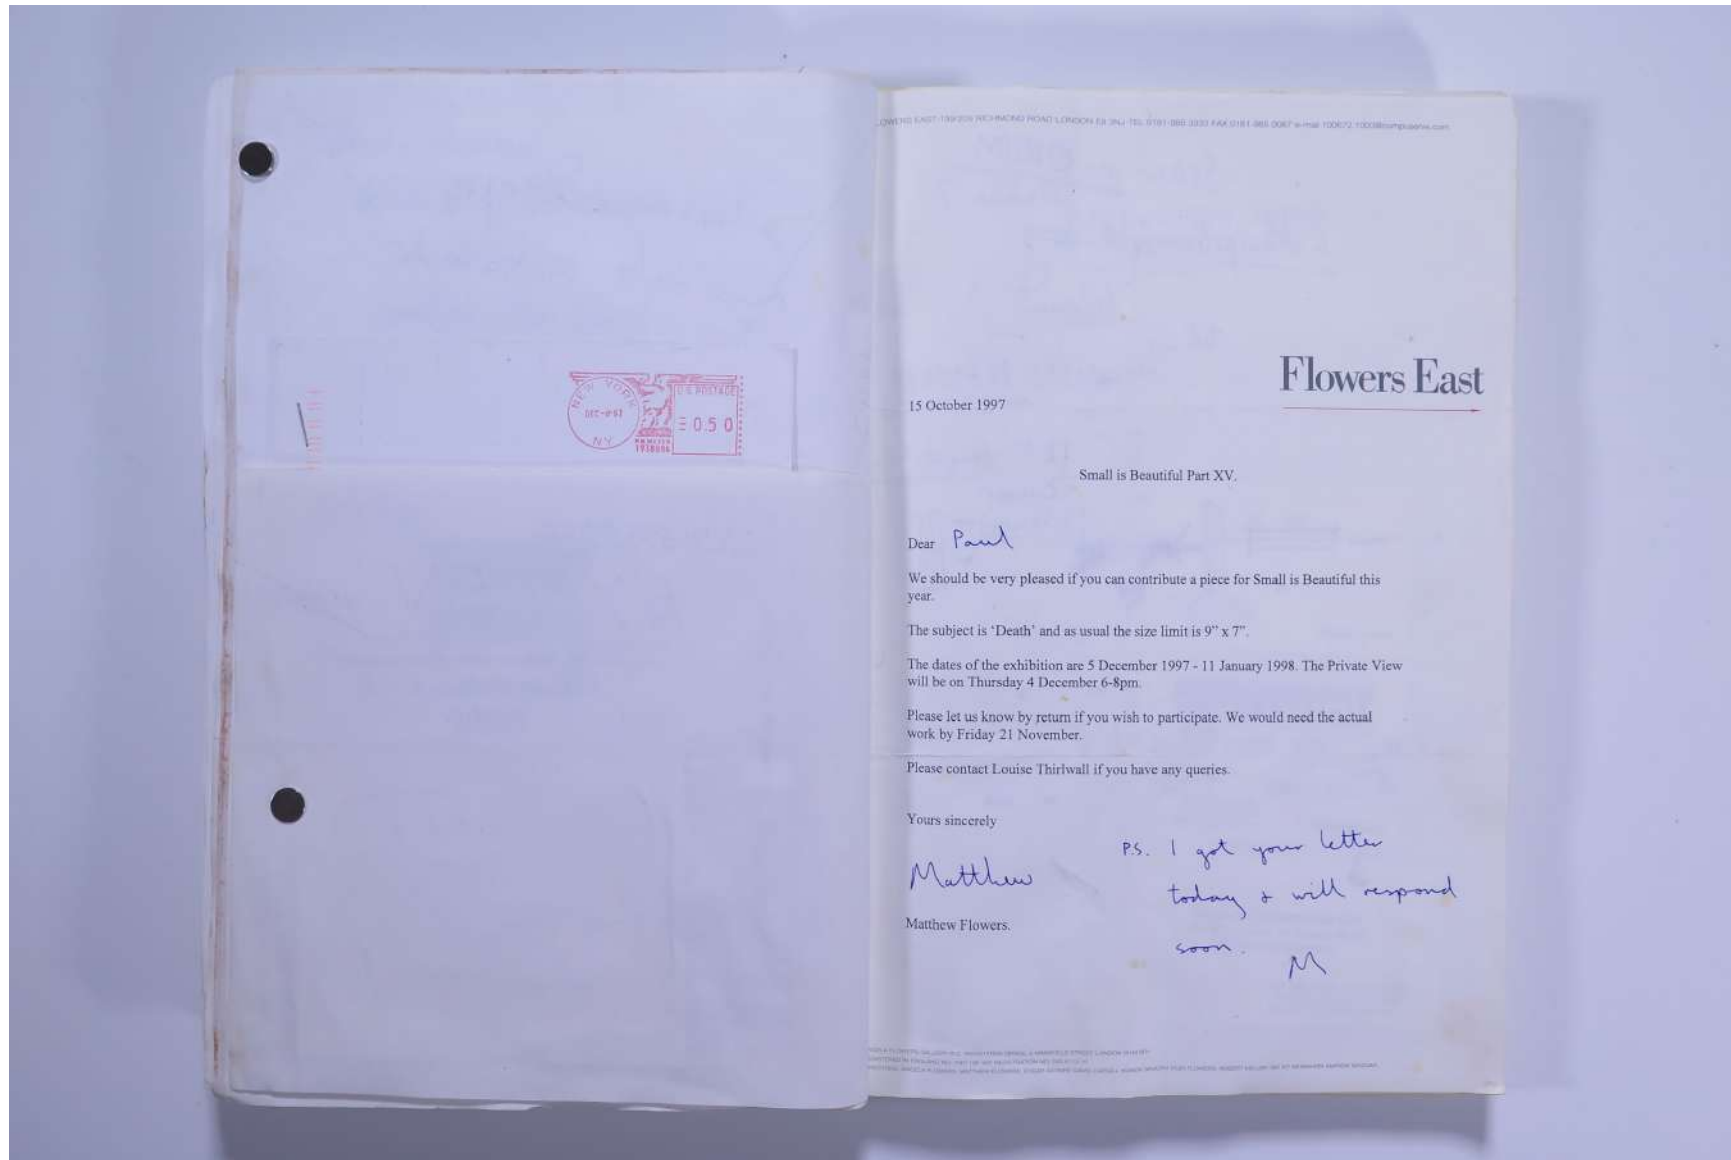 NEW YORK
NY
U.S. POSTAGE
0.50
FLOWERS EAST 199/205 RICHMOND ROAD LONDON E8 3NJ TEL 0181-985 3333 FAX 0181-985 0067 e-mail
Flowers East
15 October 1997
Small is Beautiful Part XV.
Dear Paul
We should be very pleased if you can contribute a piece for Small is Beautiful this
year.
The subject is ‘Death’ and as usual the size limit is 9” x 7”.
The dates of the exhibition are 5 December 1997 - 11 January 1998. The Private View
will be on Thursday 4 December 6-8pm.
Please let us know by return if you wish to participate. We would need the actual
work by Friday 21 November.
Please contact Louise Thirlwall if you have any queries.
Yours sincerely
Matthew
Matthew Flowers.
P.S. I got your letter
today & will respond
soon.
M